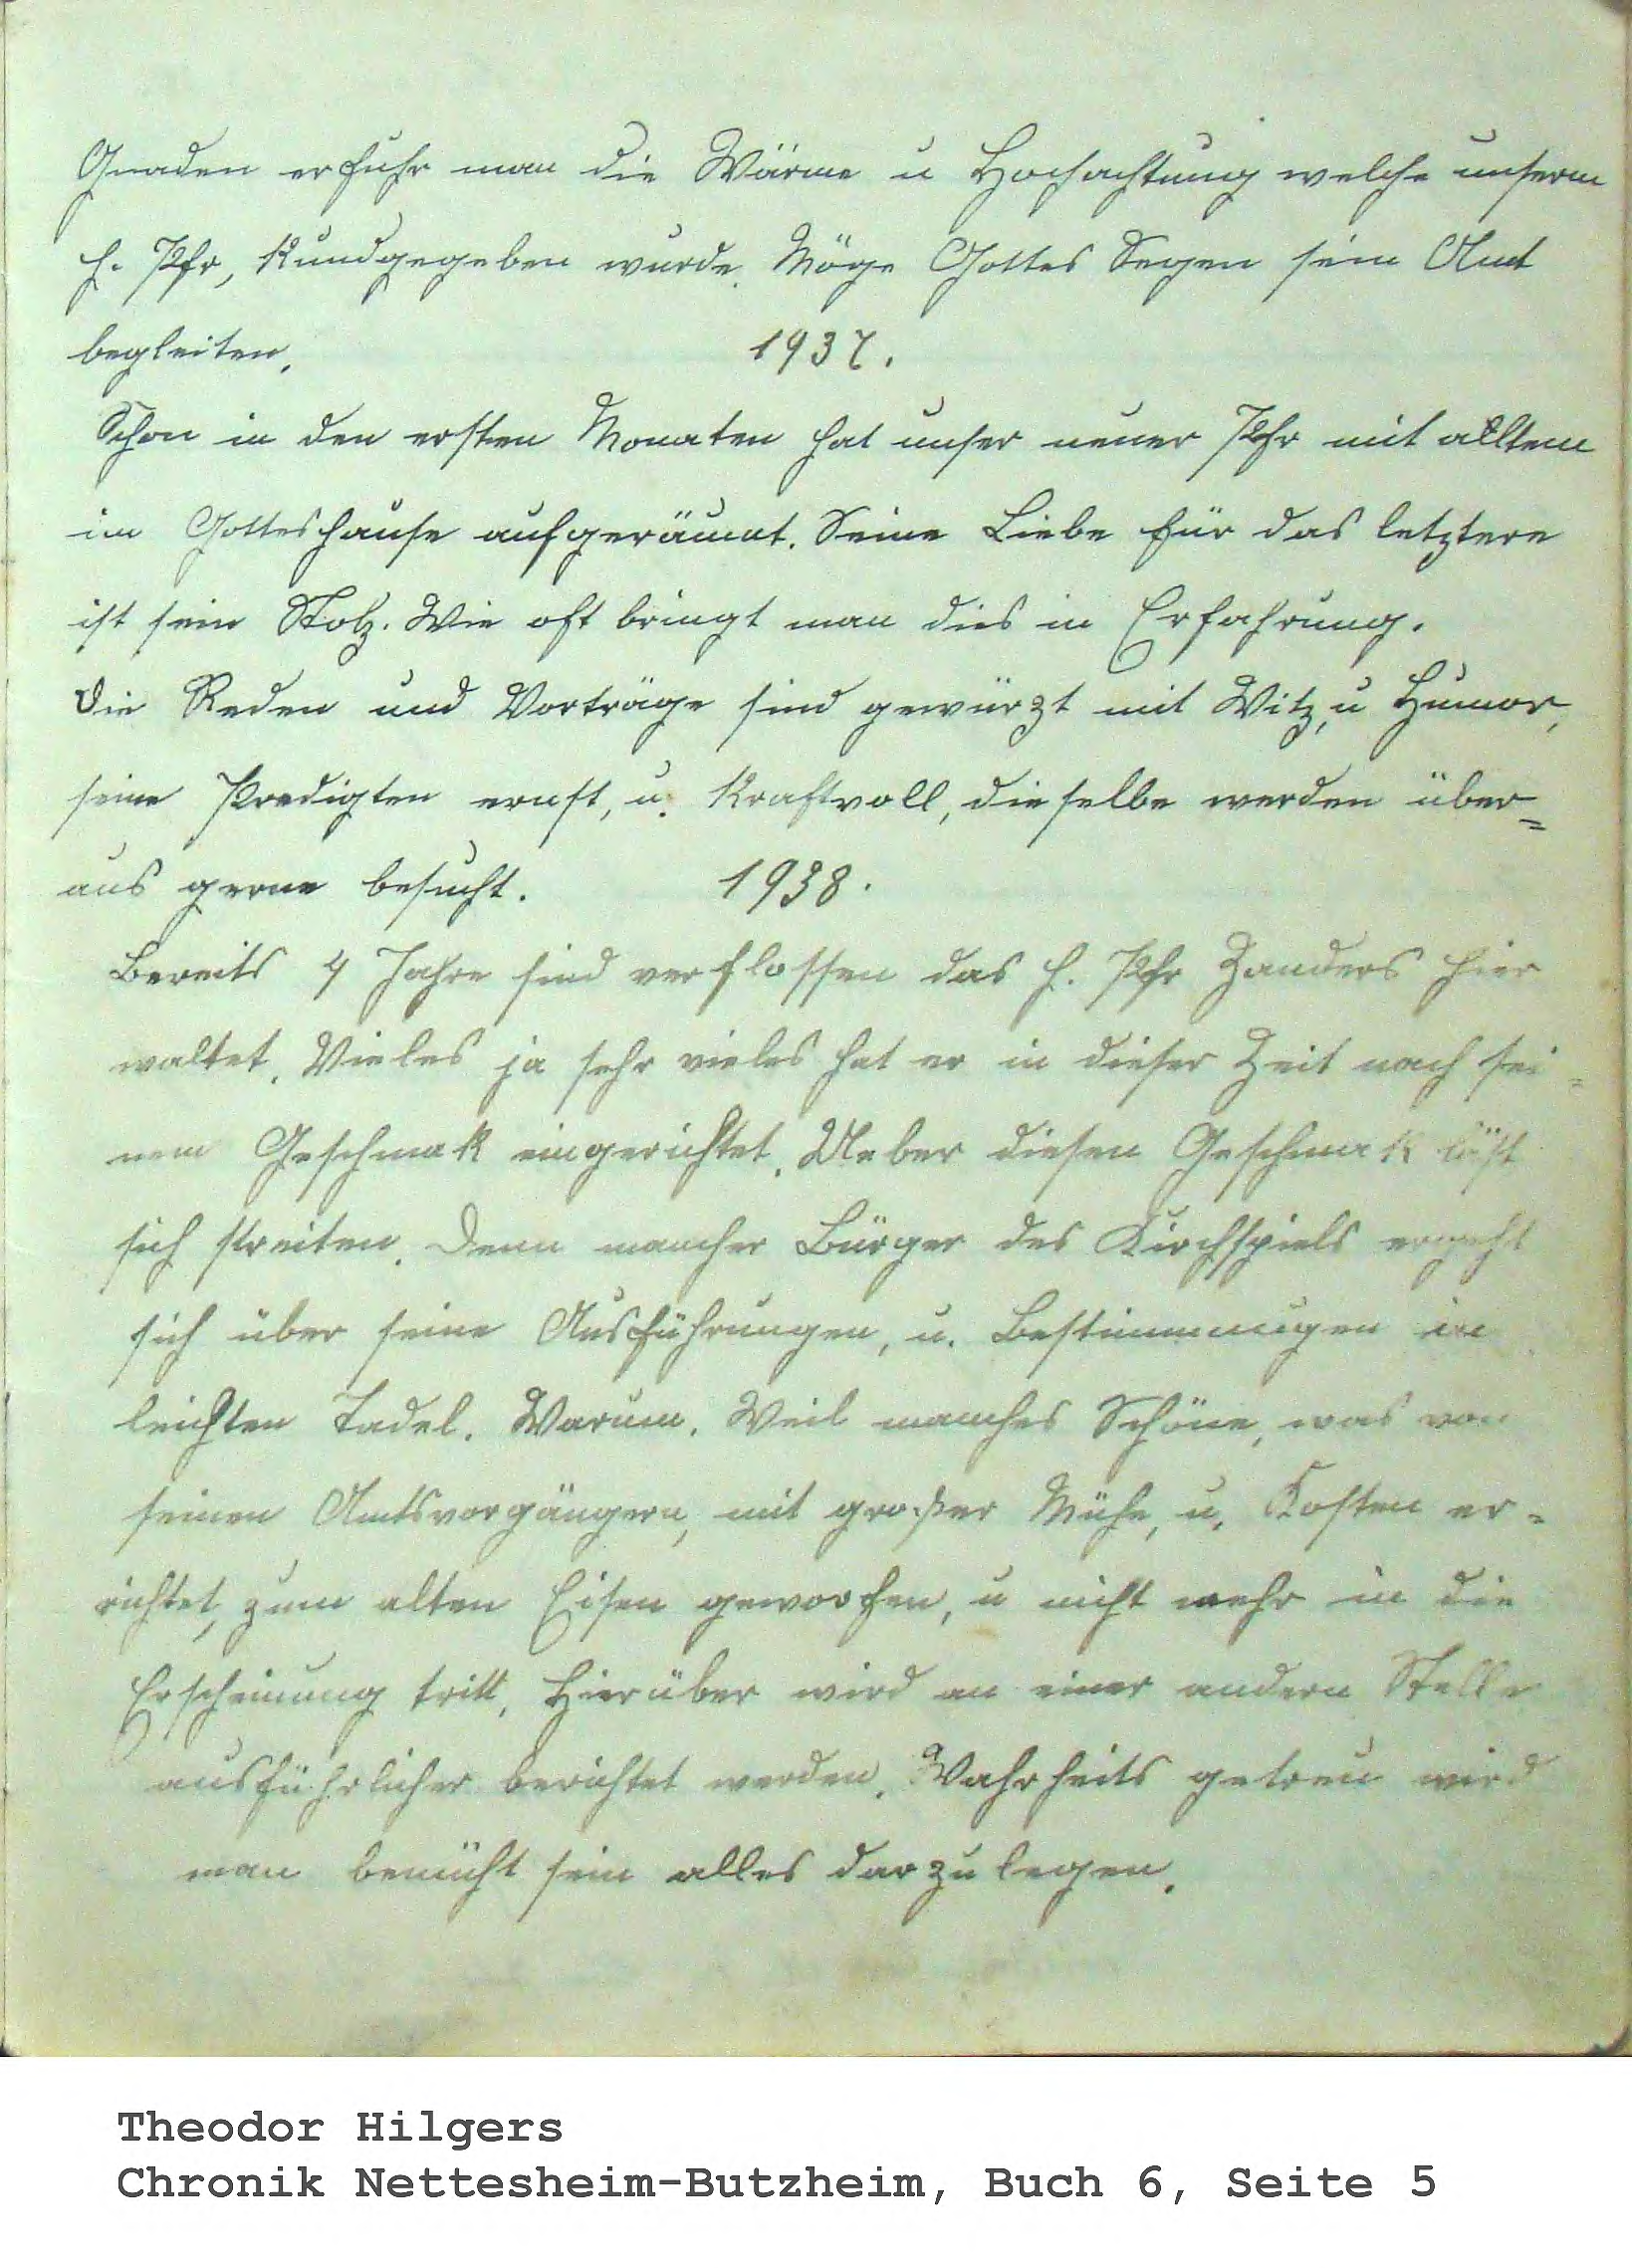 Gnaden erfuhr man die Wärme u Hochachtung welche unserm
h. Pfr, kundgegeben wurde. Möge Gottes Segen sein Amt
begleiten. 1937.
Schon in den ersten Monaten hat unser neuer Pfr mit alltem
im Gotteshause aufgeräumt. Seine Liebe für das letztere
ist sein Stolz. Wie oft bringt man dies in Erfahrung.
Die Reden und Vorträge sind gewürzt mit Witz, u Humor,
seine Predigten ernst, u. Kraftvoll, dieselbe werden über=
aus gerne besucht. 1938.
Bereits 4 Jahre sind verflossen das h. Pfr Zanders hier
waltet. Vieles ja sehr vieles hat er in dieser Zeit nach sei=
nem Geschmak eingerichtet. Ueber diesen Geschmak läßt
sich streiten. Denn mancher Bürger des Kirchspiels ergeht
sich über seine Ausführungen, u. Bestimmungen in
leichten Tadel. Warum. Weil manches Schöne, was von
seinen Amtsvorgängern, mit großer Mühe, u. Kosten er=
richtet, zum alten Eisen geworfen, u nicht mehr in die
Erscheinung tritt. Hierüber wird an einer andern Stelle
ausführlicher berichtet werden. Wahrheits getreu wird
man bemüht sein alles darzulegen.
Theodor Hilgers
Chronik Nettesheim-Butzheim, Buch 6, Seite 5